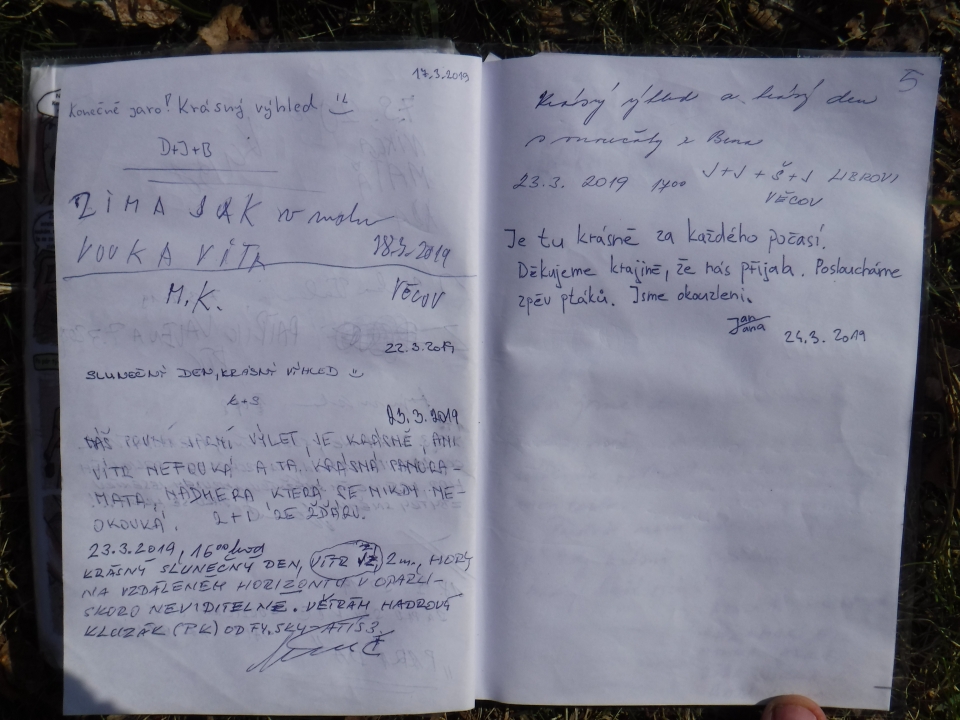 17.3.2019
Konečně jaro! Krásný výhled
D+J+B
ZIMA JAK
VOUKÁ VÍTR 18.3.2019
M.K. VĚCOV
22.3.2019
SLUNEČNÝ DEN, KRÁSNÝ VÝHLED
K+S
23.3.2019
NÁŠ PRVNÍ JARNÍ VÝLET, JE KRÁSNĚ, ANI
VÍTR NEFOUKÁ A TA KRÁSNÁ PANORA-
MATA, NÁDHERA KTERÁ SE NIKDY NE-
OKOUKÁ. ZE ŽĎÁRU.
23.3.2019, 16 00 hod
KRÁSNÝ SLUNEČNÝ DEN, VÍTR JZ 2m., HORY
NA VZDÁLENÉM HORIZONTU V OPARU-
SKORO NEVIDITELNÉ. VĚTRÁM HADROVÝ
KLUZÁK (PK) OD FY. SKY ATIS 3.
5
Krásný výhled a krásý den
s
23.3. 2019 17 00 J+J+Š+J LIBROVI
VĚCOV
Je tu krásně za každého počasí.
Děkujeme krajině, že nás přijala. Posloucháme
zpěv ptáků. Jsme okouzleni.
Jan
Jana 24.3. 2019